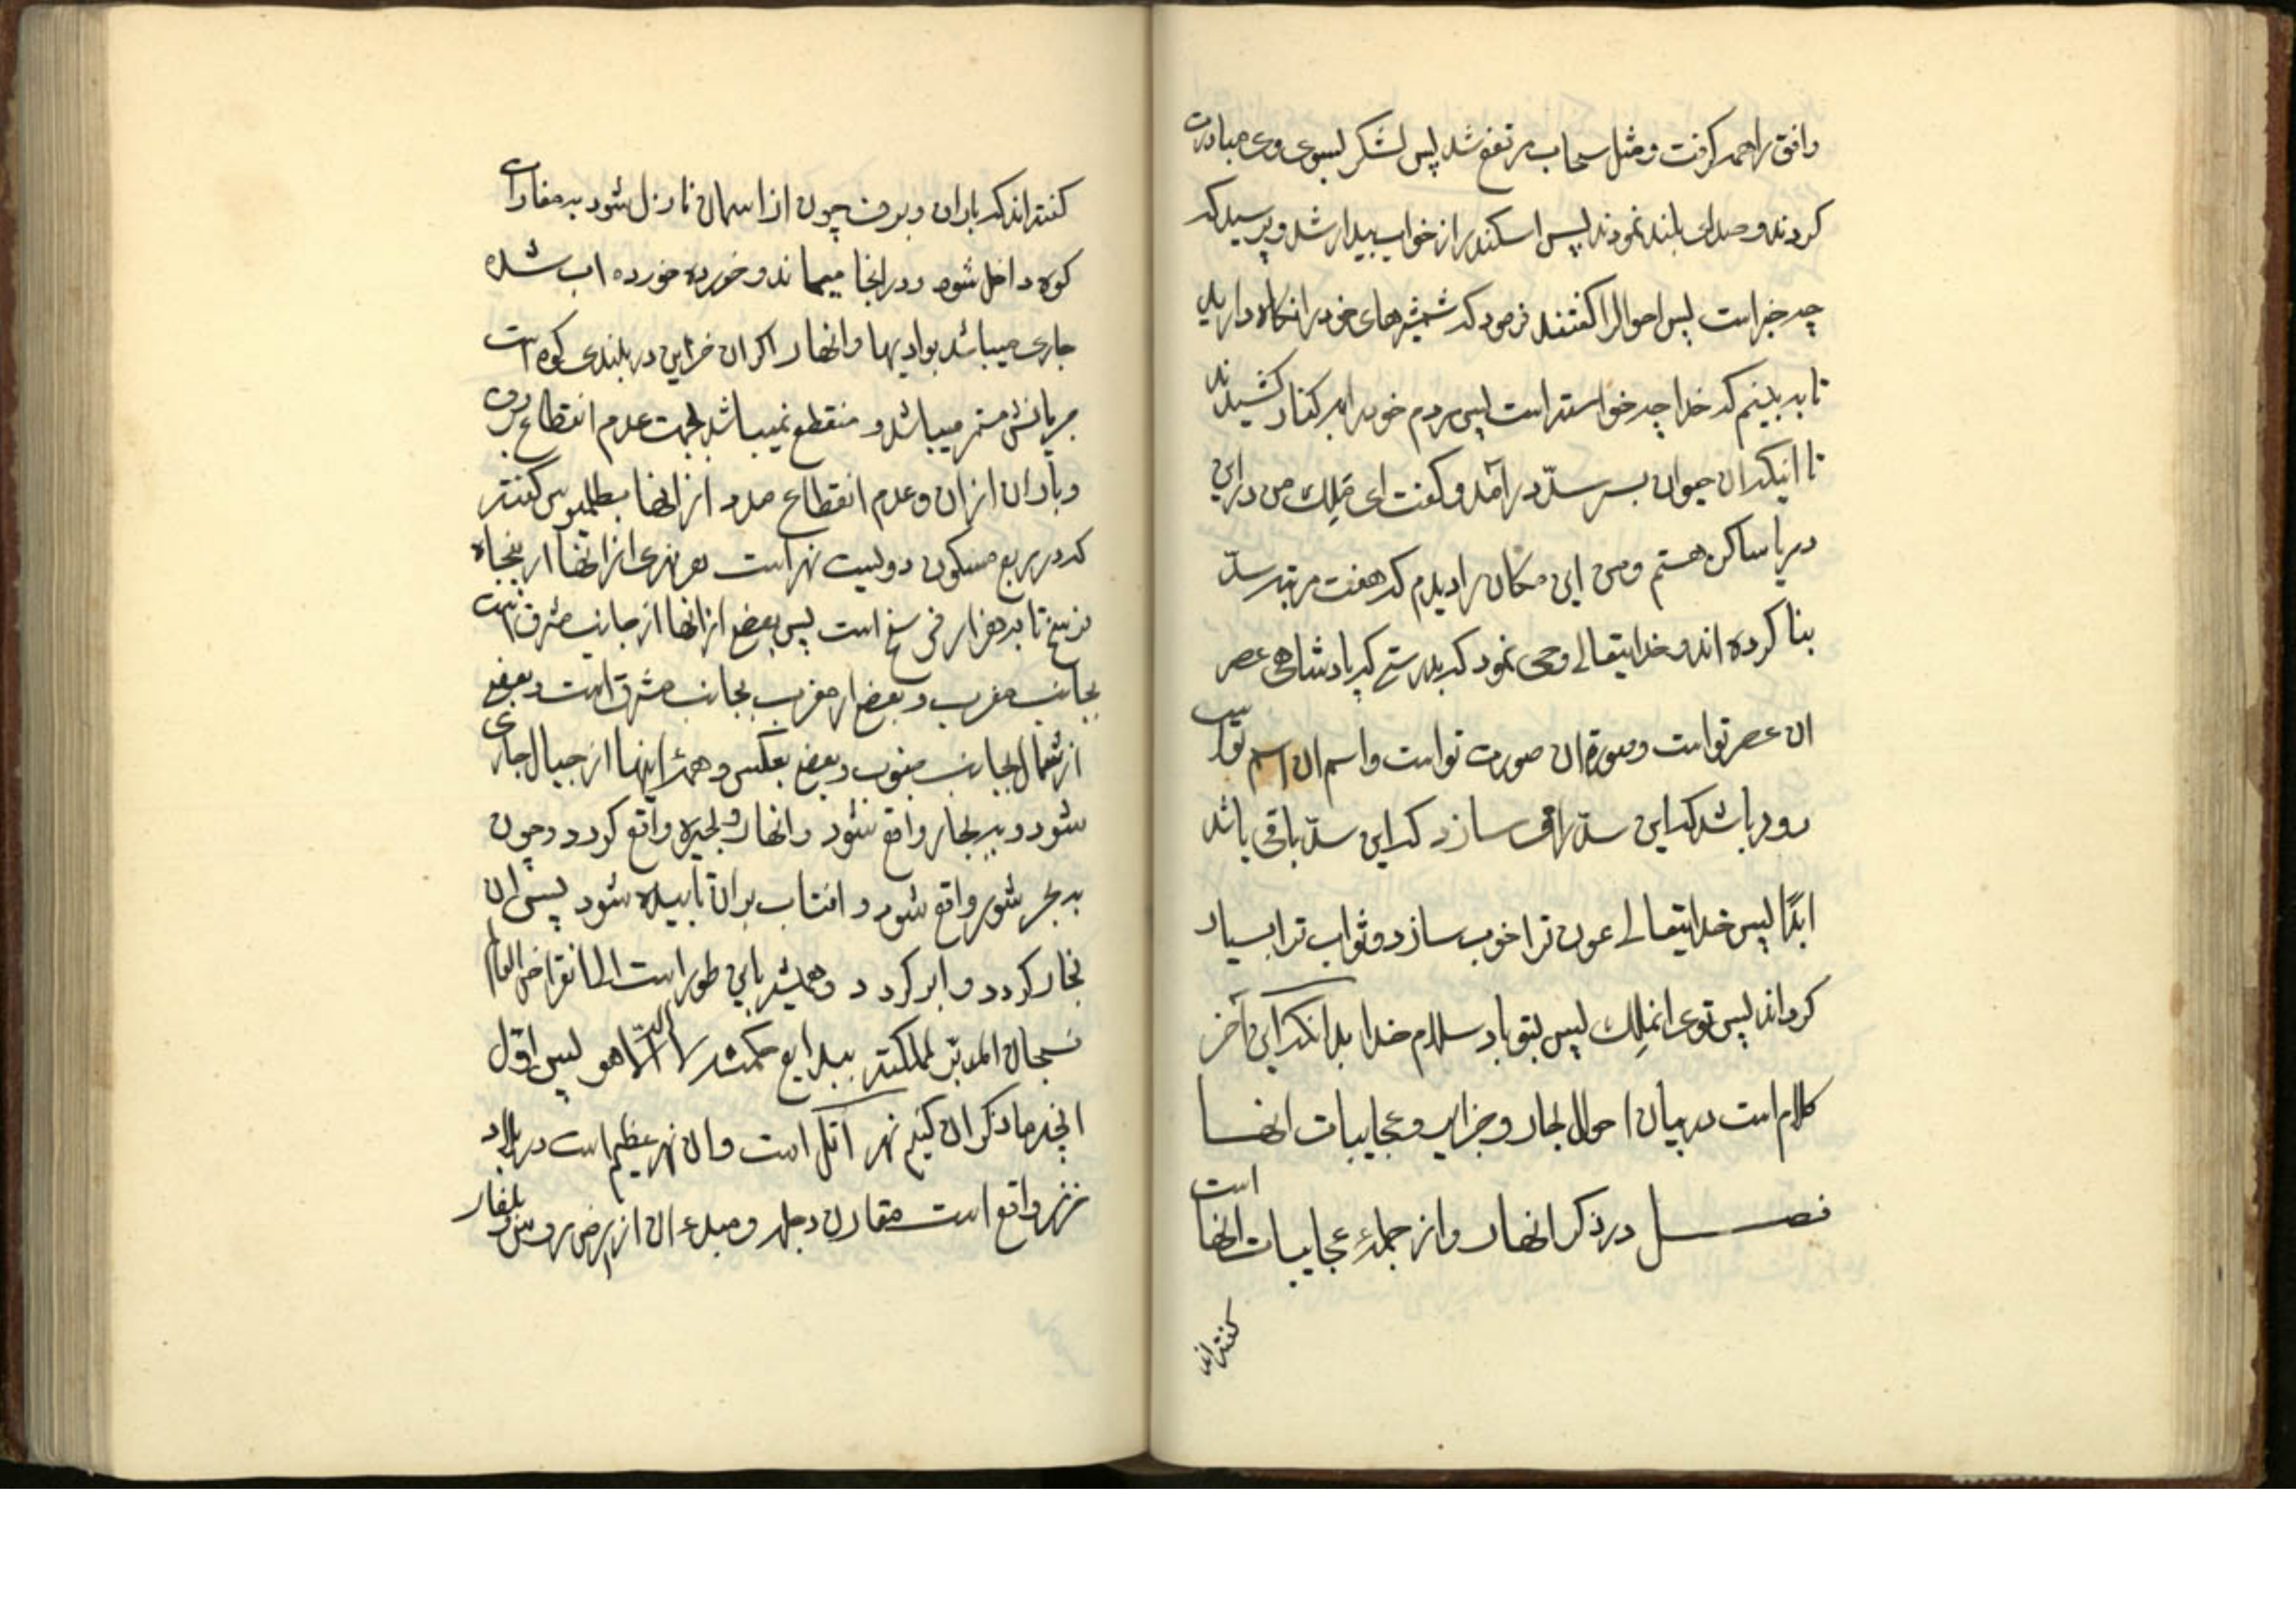 وافق را همه کرفت و مثل سحاب مرتفع شد پس لشکر بسوی وی مبادرت
کردند و صدای بلند نمودند پس اسکندر از خواب بیدار شد و پرسید که
چه خبر است پس احوال را کفتند فرمود که شمشیرهای خود را نکاه دارید
تا به بینیم که خدا چه خواسته است پس مردم خود را بر کنار کشیدند
تا اینکه ان حیوان بسر سدّ در آمد و کفت ای مَلِک من در این
دریا ساکن هستم و من این مکان را دیدم که هفت مرتبه سدّ
بنا کرده اند و خدایتعالے وحی نمود که بدرستے که پادشاهی عصر
ان عصر تو است و صورة ان صورت تو است و اسم ان اسم تو است
زود باشد که این سدّ را سازد که این سدّ باقی باشد
ابدًا پس خدایتعالے عون ترا خوب سازد و ثواب ترا بسیار
کرداند پس توی انملِک پس بتو باد سلام خدا بدانکه این آخر
کلام است در بیان احوال بحار و جزایر و عجایبات انها
فصل در ذکر انهار و از جملهٔ عجایبات انها است
کفته اند
کفته اند که باران و برف چون از اسمان نازل شود به مغارات
کوه داخل شود و در انجا میماند و خورده خورده اب شده
جاری میباشد بوادیها و انهار اکر ان خزاین در بلندی کوه است
جریانش مستمر میباشد و منقطع نمیباشد بجهت عدم انقطاع برف
و باران از ان و عدم انقطاع مدد از انها بطلمیوس کفته
که در ربع مسکون دویست نهر است هر نهری از انها از پنجاه
فرسخ تا به هزار فرسخ است پس بعض از انها از جانب مشرق است
بجانب مغرب و بعض از مغرب بجانب مشرق است و بعض
از شمال بجانب جنوب و بعض بعکس و همهٔ اینها از جبال جاری
شود و به بحار واقع شود و انهار و بحیره واقع کردد و چون
به بحر شور واقع شود و افتاب بر ان تابیده شود پس ان
بخار کردد و ابر کردد و همیشه باین طور است الی انقراض العالم
فسبحان المدبّر لمملکته ببدایع حکمته لا اله الّا هو پس اوّل
انچه ما ذکر ان کنیم نهر آتل است و ان نهر عظیم است در بلاد
خزر واقع است مقارن دجله و مبدء ان از ارض روس و بلغار